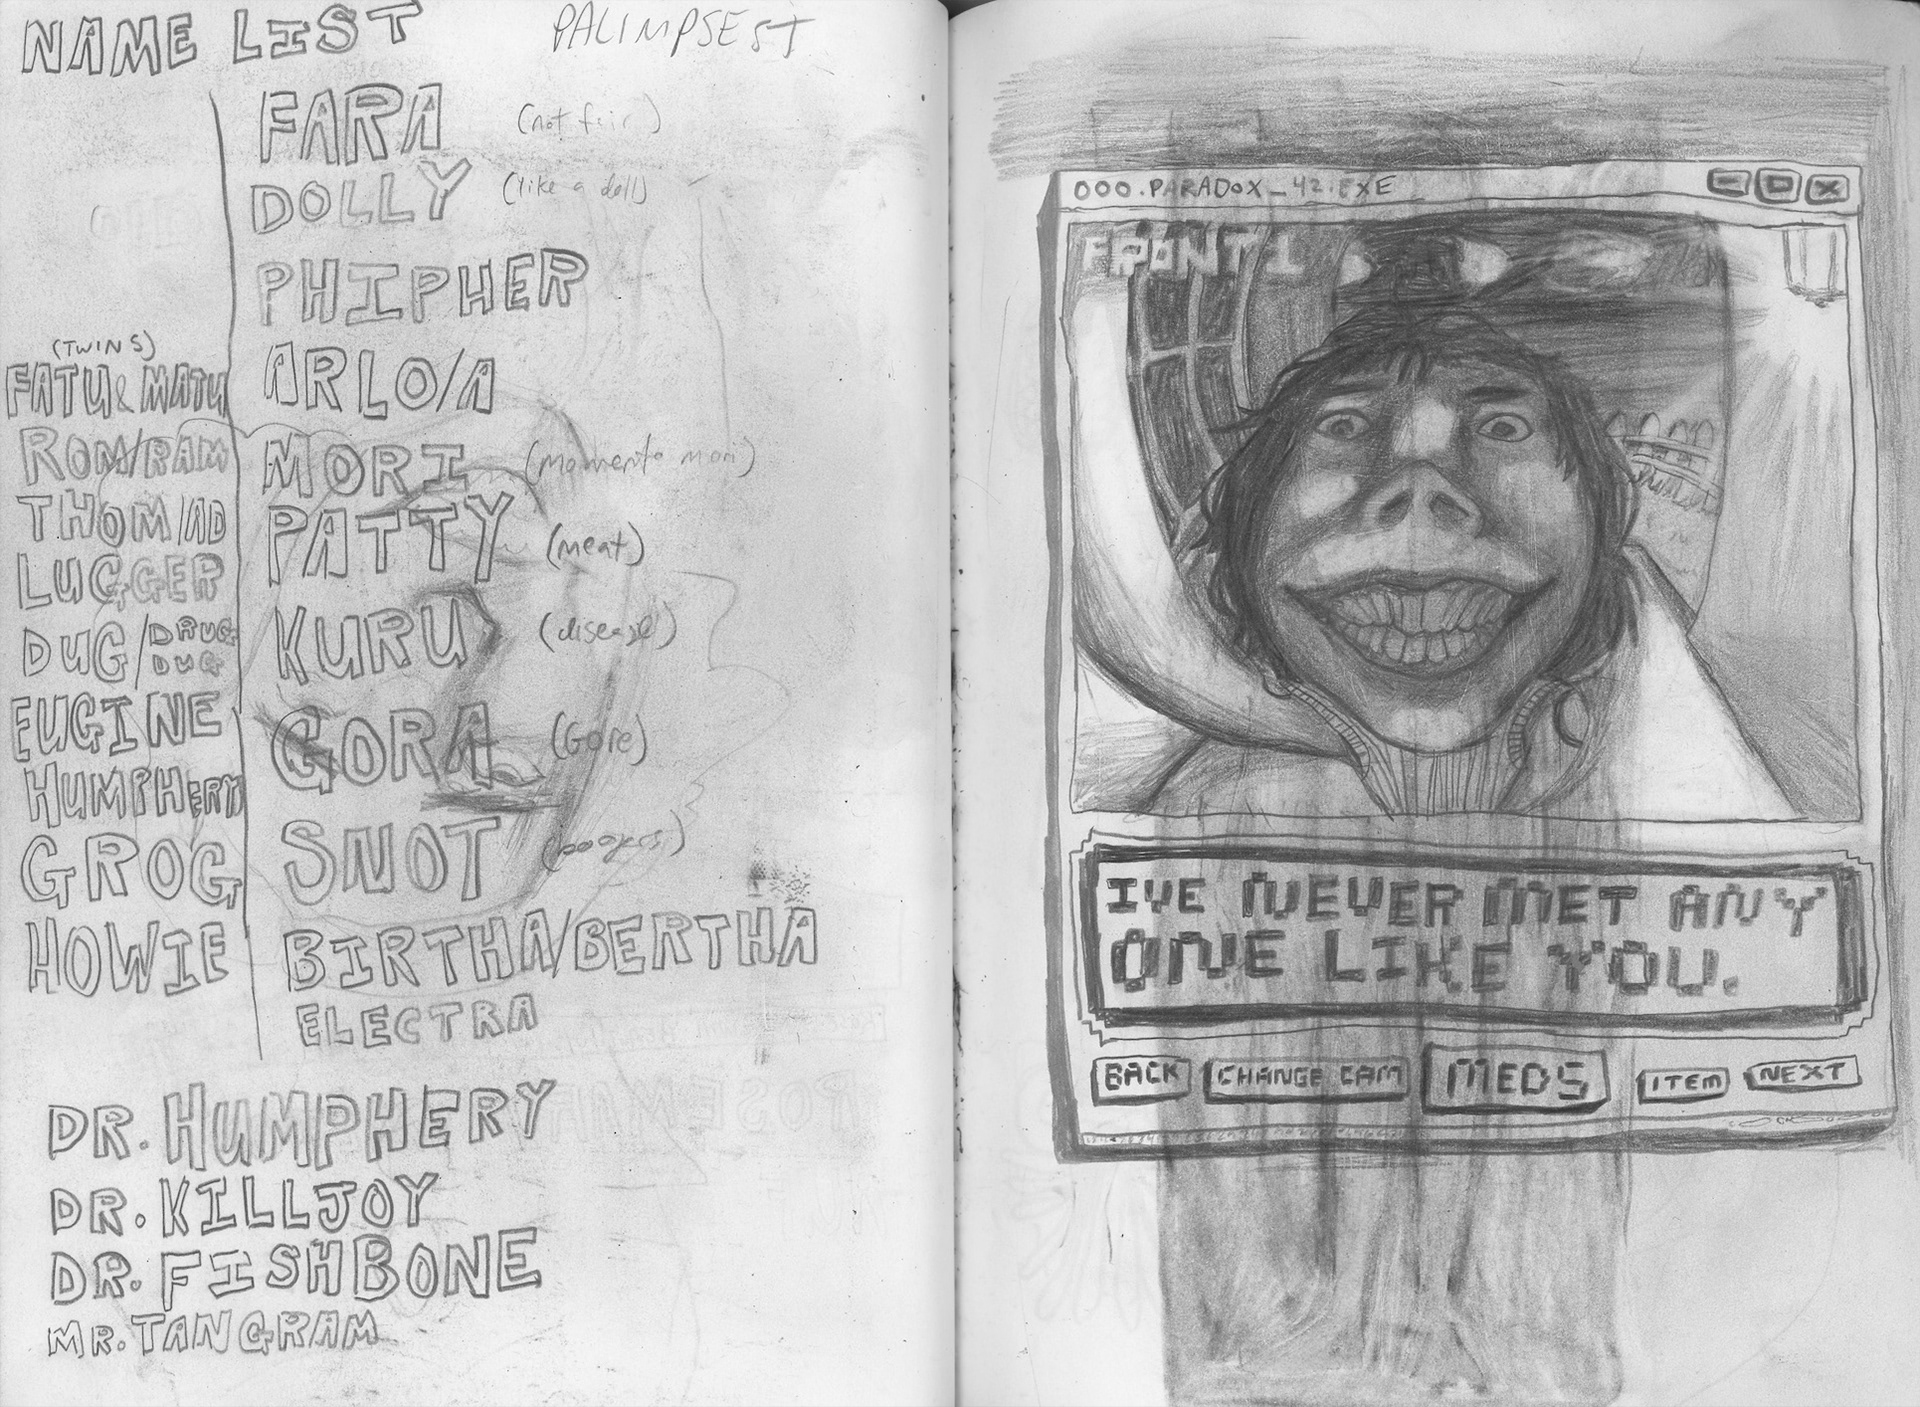 NAME LIST
PALIMPSEST
FARA (not fair)
DOLLY (like a doll)
PHIPHER
ARLO/A
MORI (momento mori)
PATTY (meat)
KURU (disease)
GORA (Gore)
SNOT (boogers)
BIRTHA/BERTHA
ELECTRA
(TWINS)
FATU & MATU
ROM/RAM
THOM/AD
LUGGER
DUG/DRUG
DUG
EUGINE
HUMPHERY
GROG
HOWIE
DR. HUMPHERY
DR. KILLJOY
DR. FISHBONE
MR. TANGRAM
000.PARADOX_42.EXE
FRONT 1
IVE NEVER MET ANY
ONE LIKE YOU.
BACK
CHANGE CAM
MEDS
ITEM
NEXT